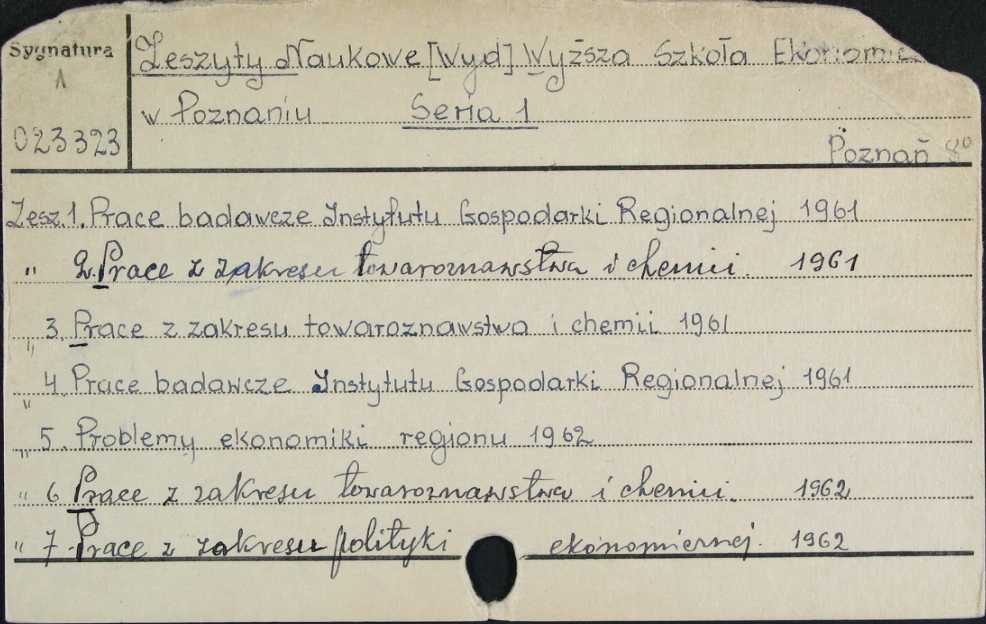 Sygnatura
Zeszyty Naukowe [Wyd] Wyższa Szkoła Ekonomic
w Poznaniu Seria 1
023323
Poznań 8°
Zesz. 1. Prace badawcze Instytutu Gospodarki Regionalnej 1961
" 2. Prace z zakresu towaroznawstwa i chemii. 1961
" 3. Prace z zakresu towaroznawstwa i chemii 1961
" 4. Prace badawcze Instytutu Gospodarki Regionalnej 1961
" 5. Problemy ekonomiki regionu 1962
" 6. Prace z zakresu towaroznawstwa i chemii. 1962
" 7. Prace z zakresu polityki ekonomicznej. 1962